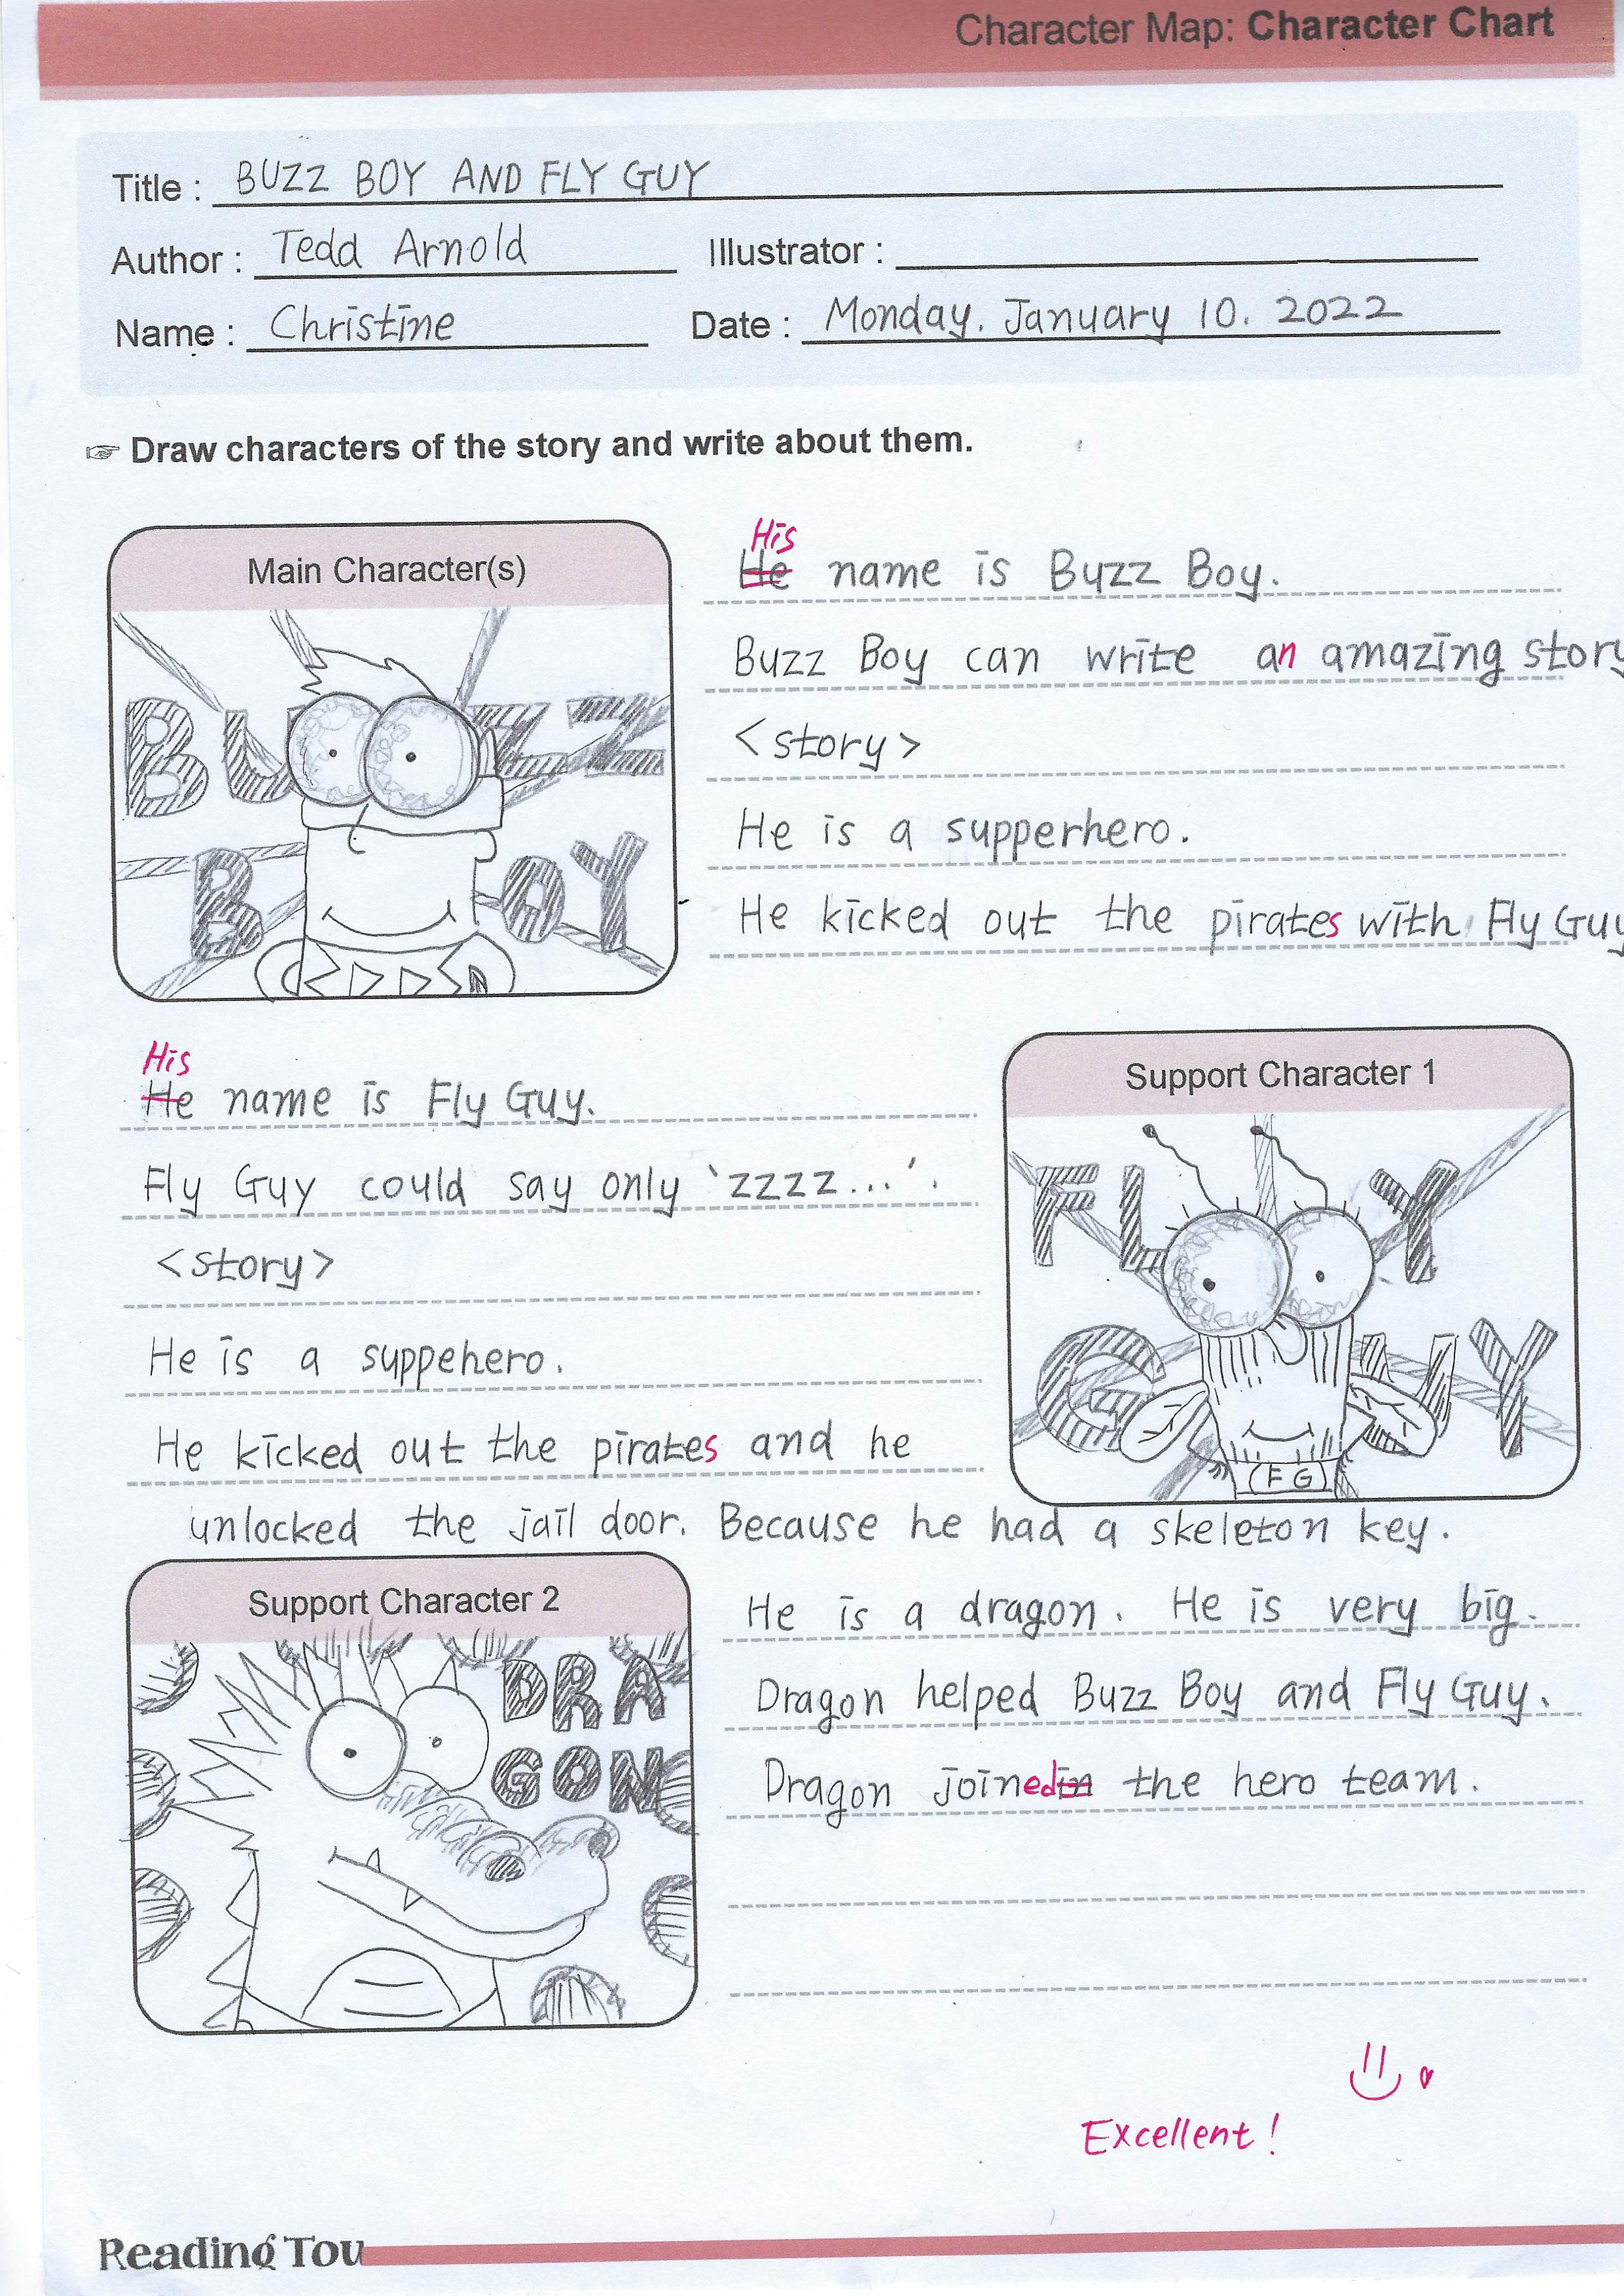 Character Map: Character Chart
Title : BUZZ BOY AND FLY GUY
Author : Tedd Arnold Illustrator :
Name : Christine Date : Monday. January 10. 2022
☞ Draw characters of the story and write about them.
Main Character(s)
BUZZ
BOY
His
He name is Buzz Boy.
Buzz Boy can write an amazing story
<story>
He is a supperhero.
He kicked out the pirates with Fly Guy
His
He name is Fly Guy.
Fly Guy could say only 'zzzz...'.
<story>
He is a suppehero.
He kicked out the pirates and he
unlocked the jail door. Because he had a skeleton key.
Support Character 1
FLY
GUY
(FG)
Support Character 2
DRA
GON
He is a dragon. He is very big.
Dragon helped Buzz Boy and Fly Guy.
Dragon joinedin the hero team.
Excellent!
Reading Tou